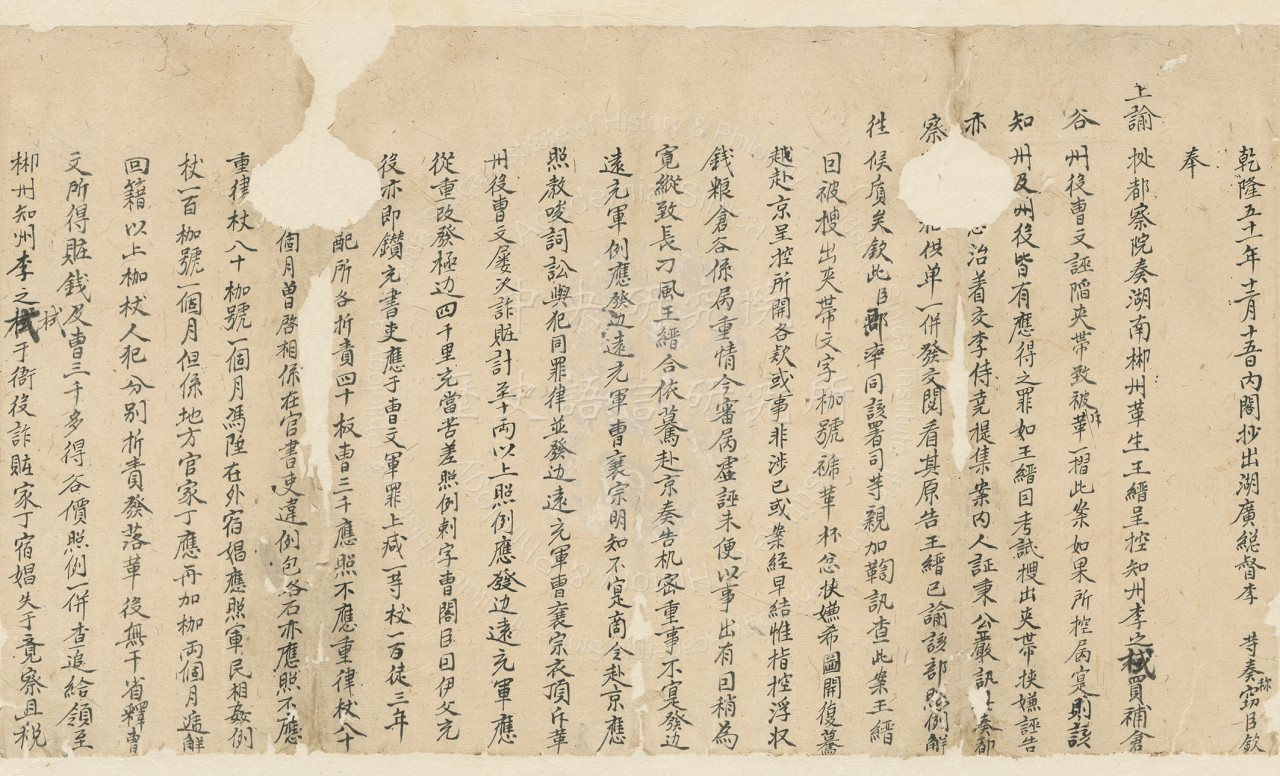 乾隆五十一年十二月十五日內閣抄出湖廣總督李 等奏稱竊臣欽
奉
上諭 拠都察院奏湖南郴州革生王縉呈控知州李之栻買補倉
谷 州役曹文誣陷夾帶致被斥革一摺此案如果所控屬寔則該
知州及州役皆有應得之罪如王縉因考試搜出夾帶挾嫌誣告
亦 治著交李侍堯提集案內人証秉公嚴訊 奏都
察 供单一併發交閱看其原告王縉已諭該部照例解
徃候質矣欽此臣 率同該署司等親加鞫訊查此案王縉
因被搜出夾帶文字枷號褫革杯忿挾嫌希圖開復驀
越赴京呈控所開各款或事非涉已或案経早結惟指控浮收
錢粮倉谷係屬重情今審屬虛誣未便以事出有因稍為
寬縱致長刁風王縉合依驀赴京奏告机密重事不寔發边
遠充軍例應發边遠充軍曹襄宗明知不寔商令赴京應
照教唆詞訟與犯同罪律並發边遠充軍曹襄宗衣頂斥革
州役曹文屢次詐賍計至十両以上照例應發边遠充軍應
從重改發極边四千里充當苦差照例刺字曹閣臣因伊父充
役亦即鑽充書吏應于曹文軍罪上减一等杖一百徒三年
配所各折責四十板曹三千應照不應重律杖八十
個月曾啓相係在官書吏違例包各石亦應照不應
重律杖八十枷號一個月馮陞在外宿娼應照軍民相姦例
杖一百枷號一個月但係地方官家丁應再加枷両個月逓解
回籍以上枷杖人犯分別折責發落革役無干省釋曹
文所得賍銭及曹三千多得谷價照例一併查追給領至
郴州知州李之栻于衙役詐賍家丁宿娼失于覺察且税